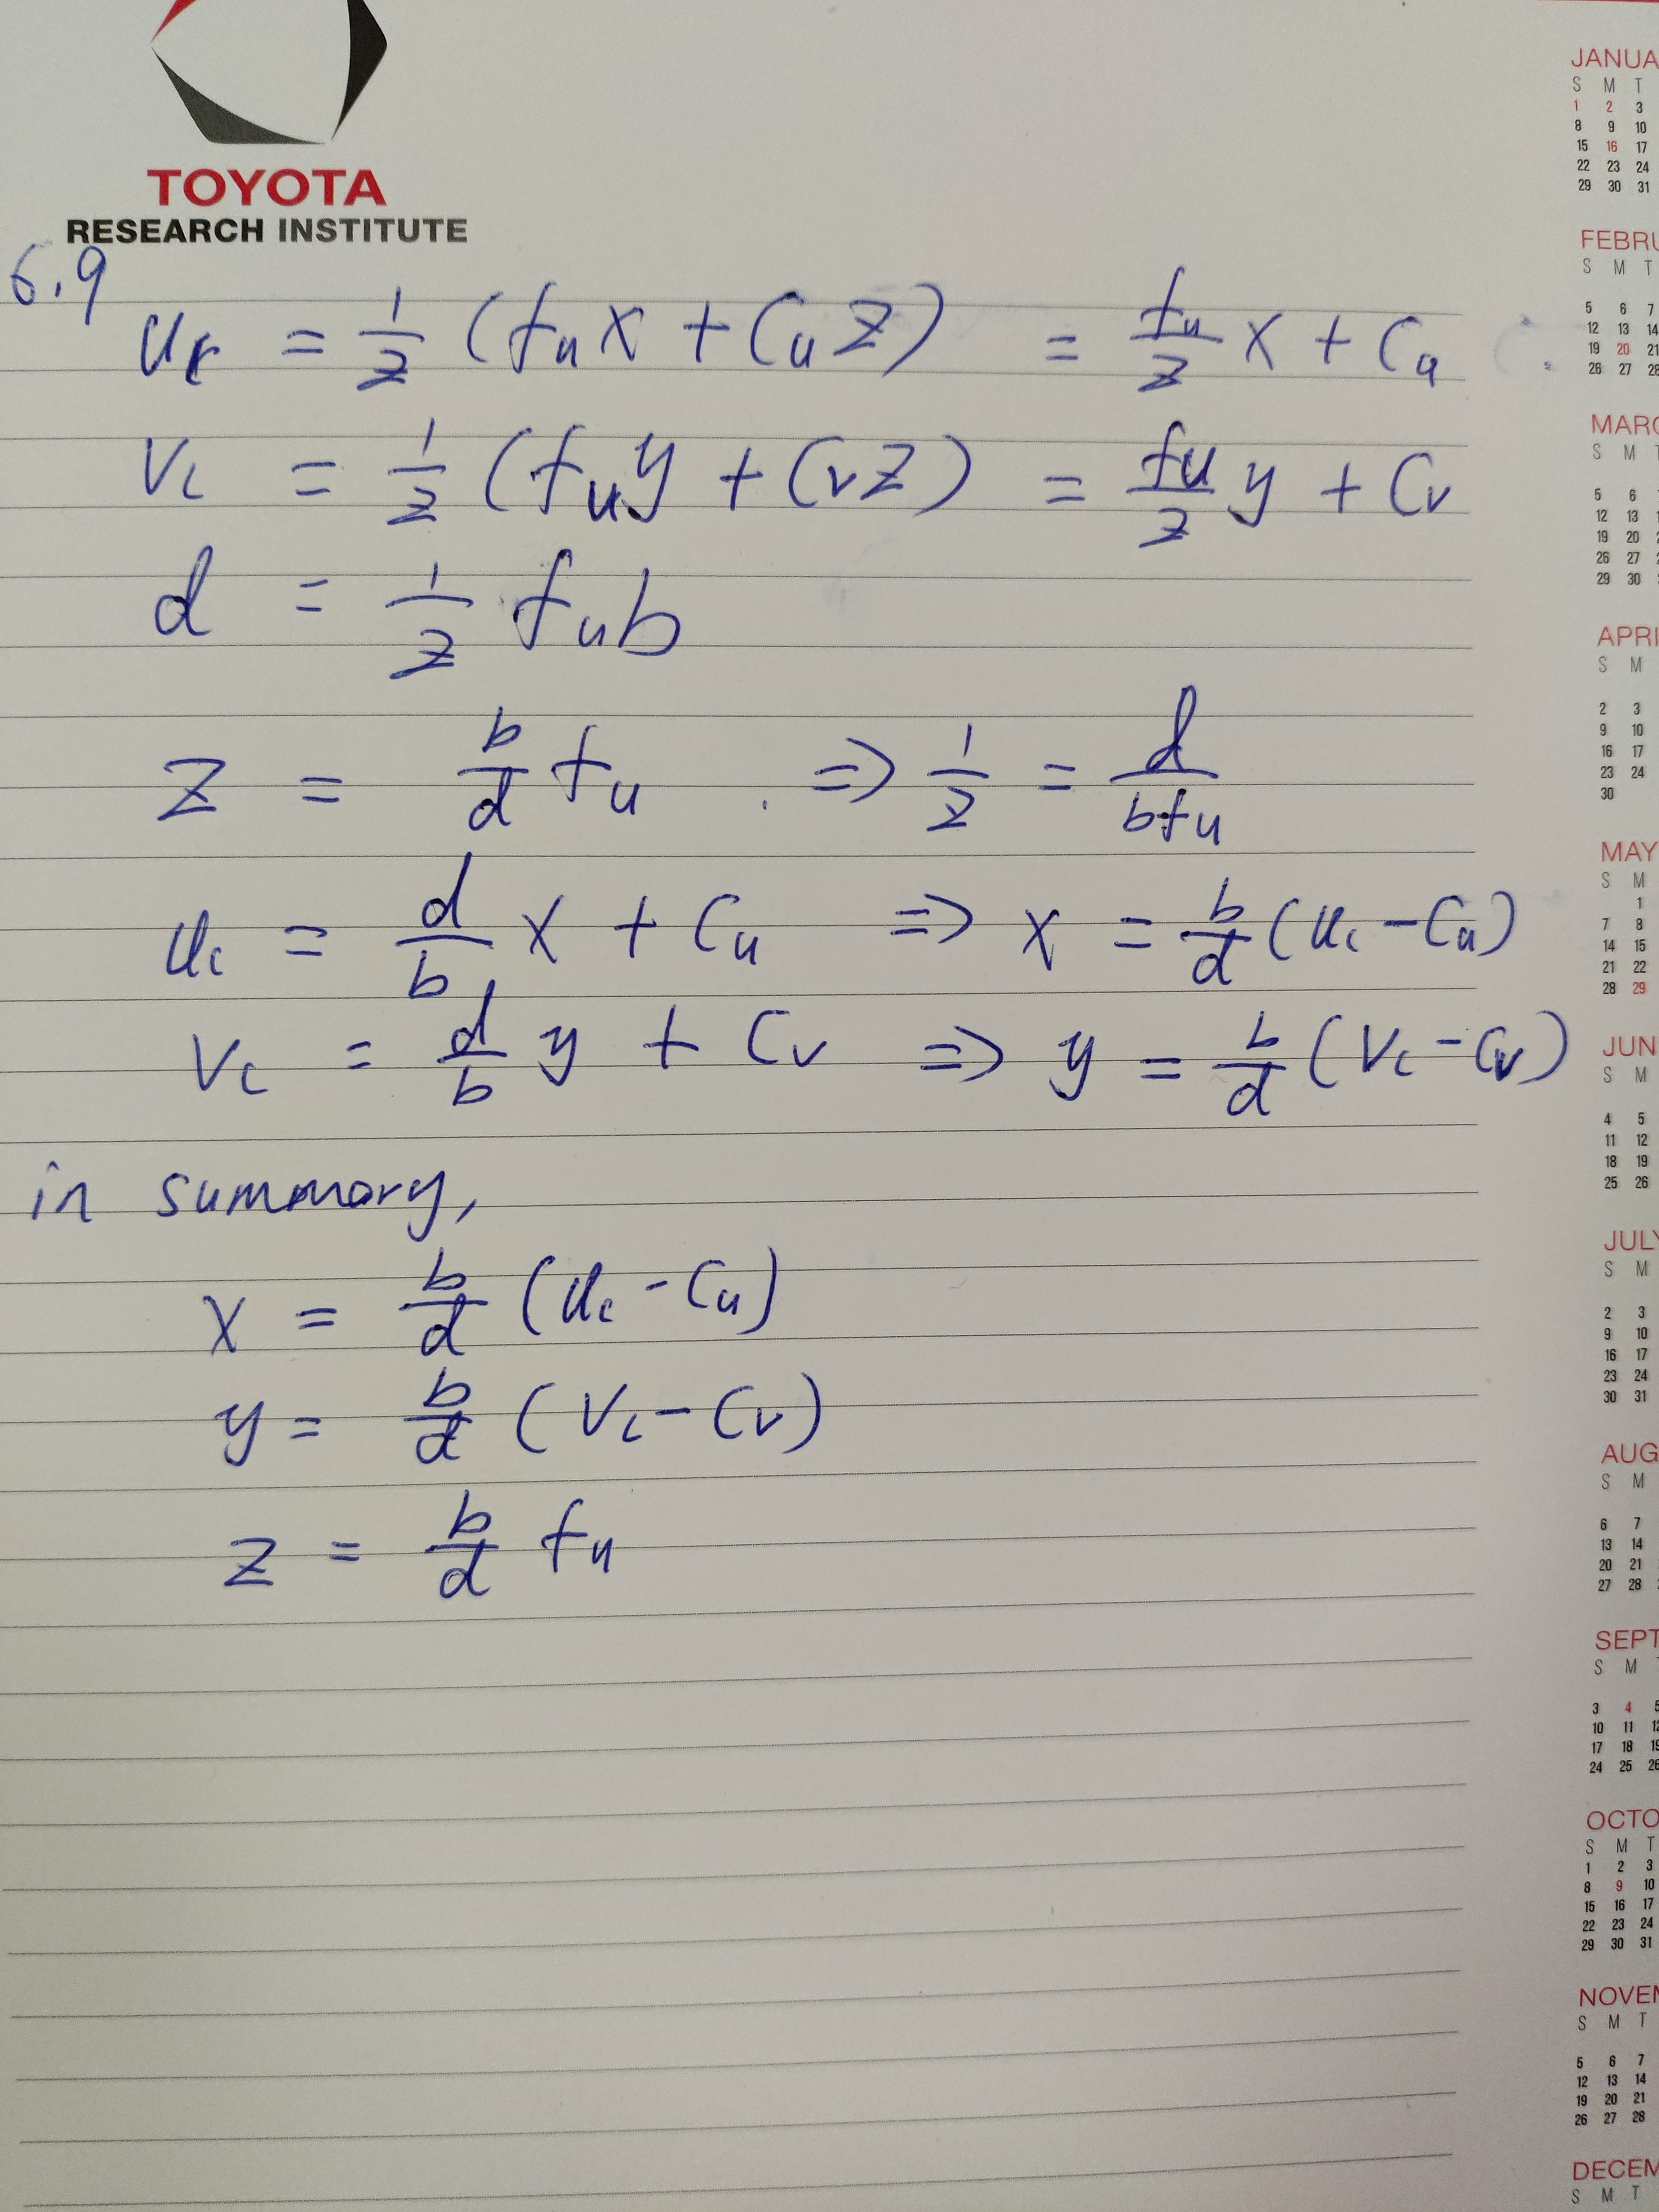 TOYOTA
RESEARCH INSTITUTE
6.9
u_ℓ = 1/z (f_u x + c_u z) = f_u/z x + c_u
v_ℓ = 1/z (f_u y + c_v z) = f_u/z y + c_v
d = 1/z f_u b
z = b/d f_u . => 1/z = d/(b f_u)
u_ℓ = d/b x + c_u => x = b/d (u_ℓ - c_u)
v_ℓ = d/b y + c_v => y = b/d (v_ℓ - c_v)
in summary,
x = b/d (u_ℓ - c_u)
y = b/d (v_ℓ - c_v)
z = b/d f_u
JANUA
S M T
1 2 3
8 9 10
15 16 17
22 23 24
29 30 31
FEBRU
S M T
5 6 7
12 13 14
19 20 21
26 27 28
MARC
S M T
5 6
12 13
19 20
26 27
29 30
APRI
S M
2 3
9 10
16 17
23 24
30
MAY
S M
1
7 8
14 15
21 22
28 29
JUN
S M
4 5
11 12
18 19
25 26
JULY
S M
2 3
9 10
16 17
23 24
30 31
AUG
S M
6 7
13 14
20 21
27 28
SEPT
S M
3 4
10 11
17 18
24 25
OCTO
S M T
1 2 3
8 9 10
15 16 17
22 23 24
29 30 31
NOVEM
S M T
5 6 7
12 13 14
19 20 21
26 27 28
DECEM
S M T